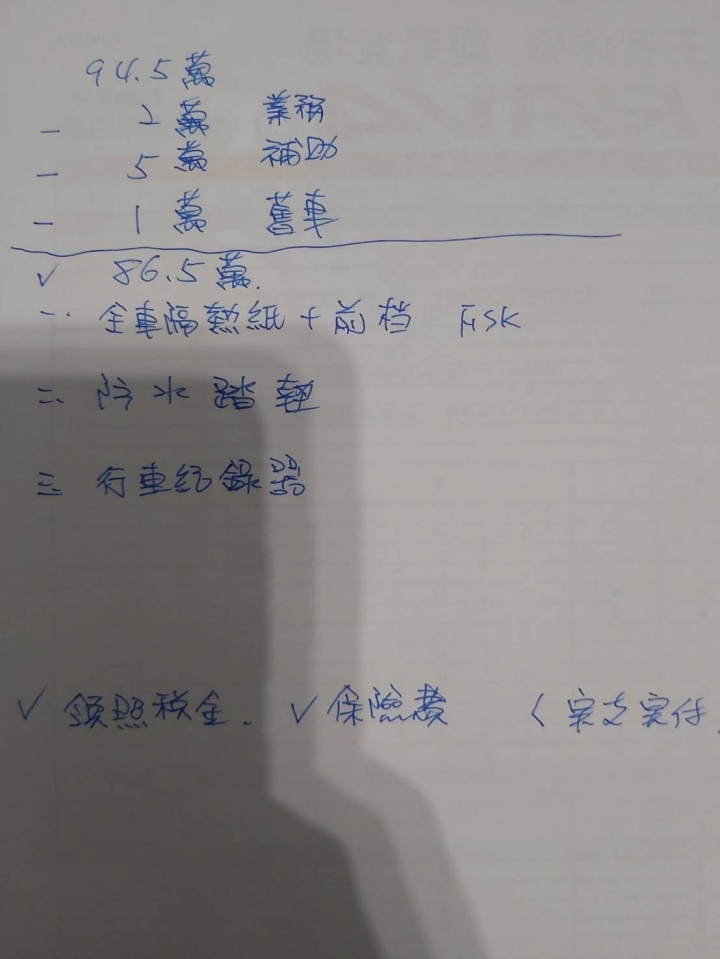 94.5萬
- 2萬 業務
- 5萬 補助
- 1萬 舊車
✓ 86.5萬.
一. 全車隔熱紙+前档 FSK
二. 防水踏墊
三 行車紀錄器
✓ 領照税金. ✓ 保險費 〈實支實付